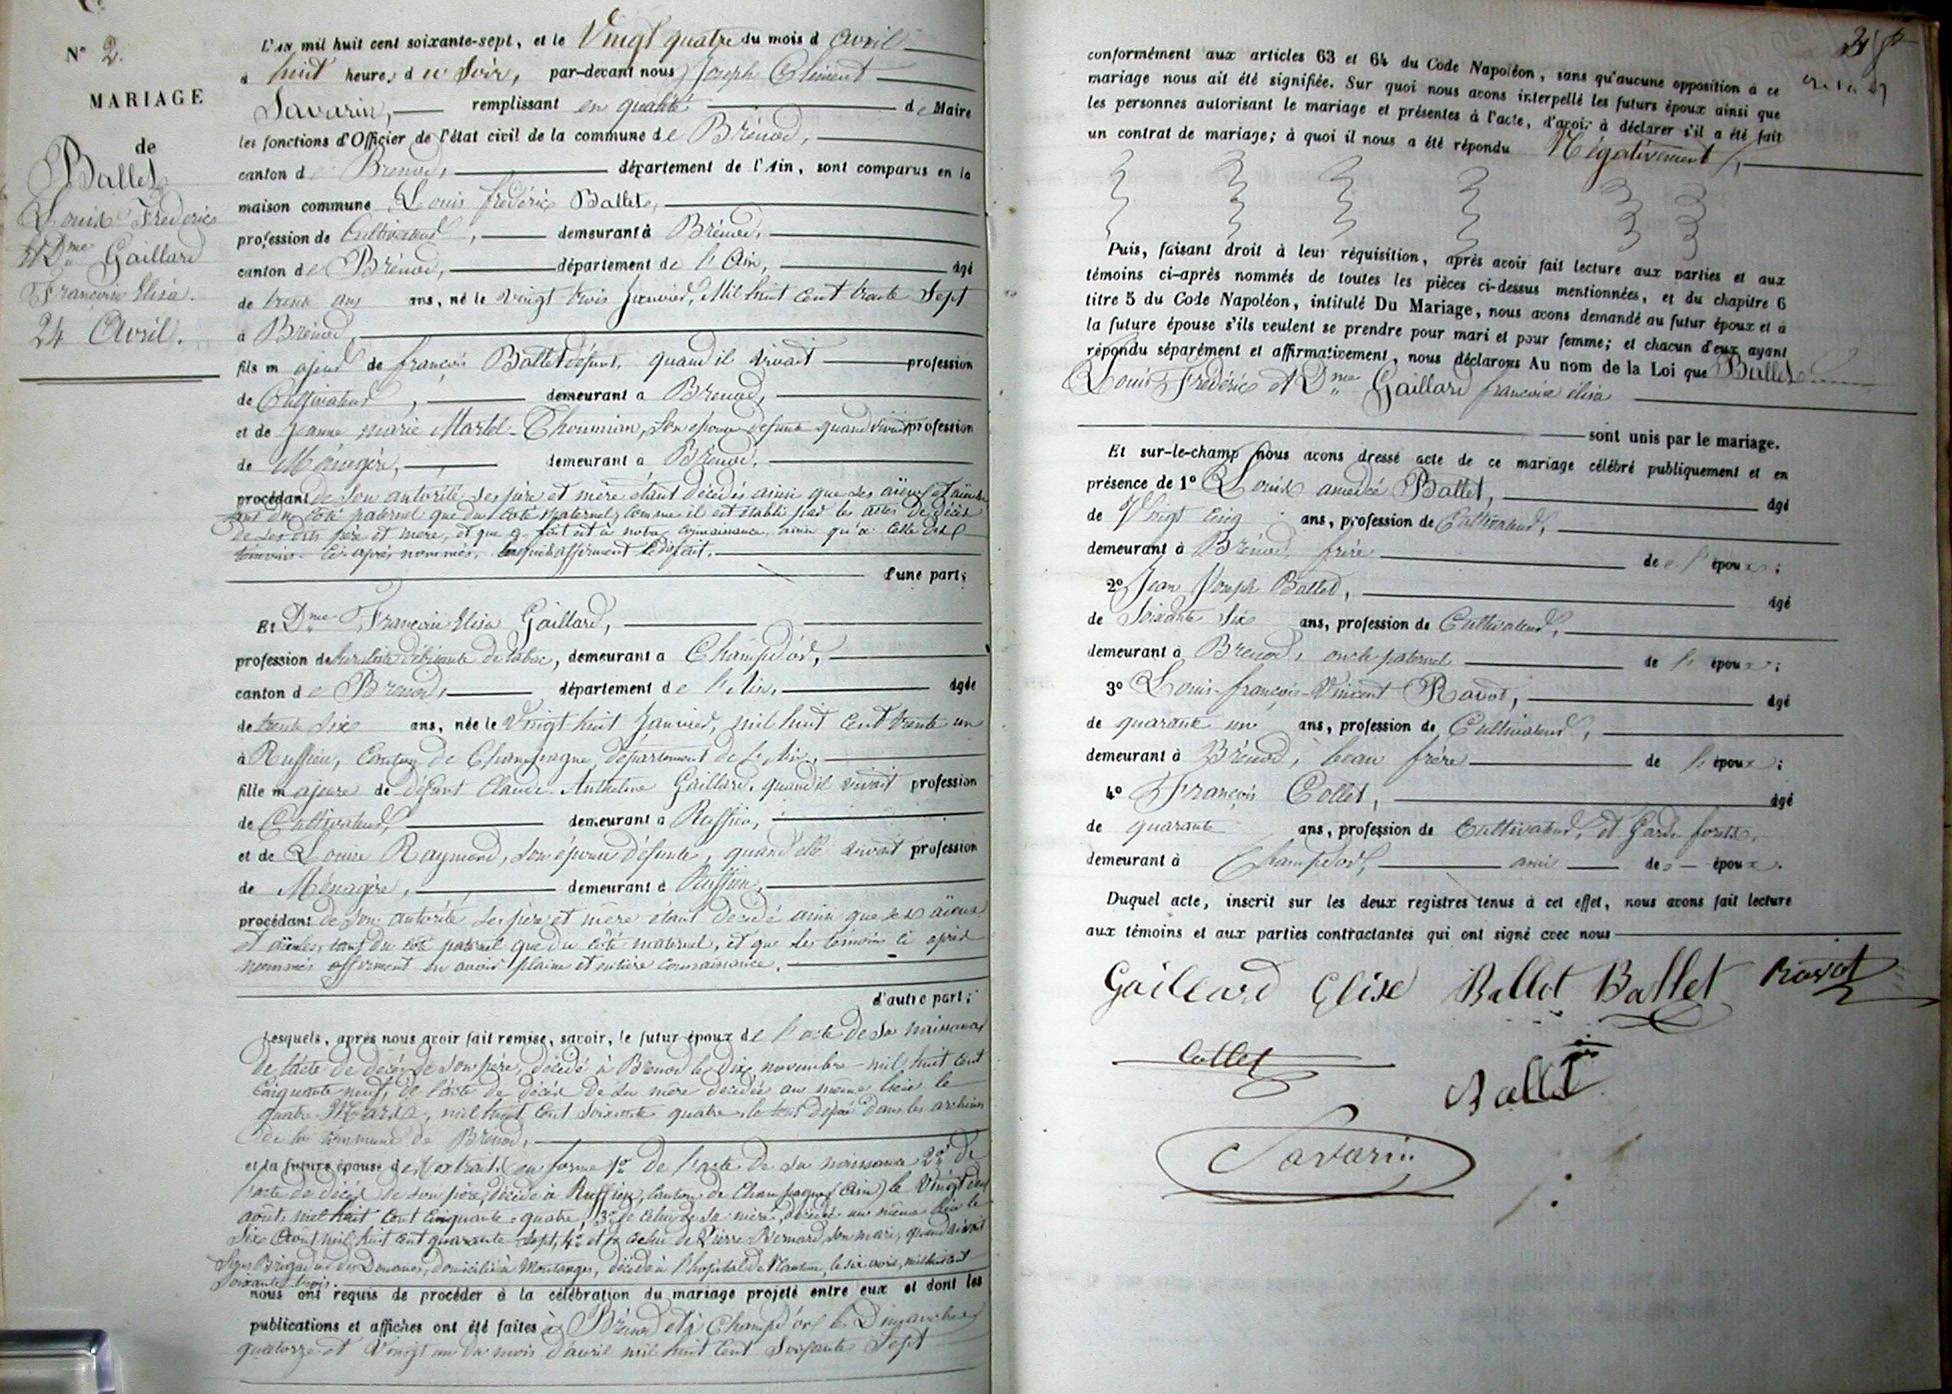 N° 2.
MARIAGE
de
Ballet
Louis Frédéric
et Dme Gaillard
Françoise Elisa.
24 Avril.
L'an mil huit cent soixante-sept, et le Vingt quatre du mois d'avril
à huit heures du Soir, par-devant nous Joseph Clément
Savarin, remplissant en qualité de Maire
les fonctions d'Officier de l'état civil de la commune de Brénod,
canton de Brénod, département de l'Ain, sont comparus en la
maison commune Louis frédéric Ballet,
profession de Cultivateur, demeurant à Brénod,
canton de Brénod, département de l'Ain, âgé
de trente ans ans, né le vingt trois Janvier, Mil huit cent trente Sept
à Brénod,
fils majeur de françois Ballet défunt, quand il vivait profession
de Cultivateur, demeurant à Brénod,
et de Jeanne marie Martel-Thoumian, son épouse défunte quand vivait profession
de Ménagère, demeurant à Brénod,
procédant de son autorité, ses père et mère étant décédés ainsi que ses aïeuls et aïeules
tant du côté paternel que du côté maternel, comme il est établi par les actes de décès
de ses dits père et mère, et que ce fait est à notre connaissance, ainsi qu'à celle des
témoins ci-après nommés, lesquels affirment le dit fait,
d'une part;
Et Dme Françoise Elisa Gaillard,
profession de buraliste débitante de tabac, demeurant à Champd'or,
canton de Brénod, département de l'Ain, âgée
de trente six ans, née le Vingt huit Janvier, mil huit cent trente un
à Ruffieu, Canton de Champagne, département de l'Ain,
fille majeure de défunt Claude Anthelme Gaillard, quand il vivait profession
de Cultivateur, demeurant à Ruffieu,
et de Louise Raymond, son épouse défunte, quand elle vivait profession
de Ménagère, demeurant à Ruffieu,
procédant de son autorité, ses père et mère étant décédé ainsi que ses aïeux
et aïeules, tant du côté paternel que du côté maternel, et que les témoins ci après
nommés affirment en avoir pleine et entière connaissance.
d'autre part;
Lesquels, après nous avoir fait remise, savoir, le futur époux de l'acte de sa naissance
de l'acte de décès de son père, décédé à Brénod le dix novembre mil huit cent
cinquante neuf, de l'acte de décès de sa mère décédée au même lieu le
quatre Mars, mil huit cent soixante quatre, le tout déposé dans les archives
de la commune de Brénod,
et la future épouse de, extraits en forme 1° de l'acte de sa naissance 2° de
l'acte de décès de son père, décédé à Ruffieu, canton de Champagne (Ain) le Vingt
août, mil huit cent cinquante-quatre, 3° de celui de sa mère, décédée au même lieu le
six Août mil huit cent quarante sept, 4° et de celui de Pierre Bernard, son mari, quand vivait
Sous Brigadier des Douanes, domicilié à Montanges, décédé à l'hopital de Nantua, le six avril, mil huit cent
soixante trois.
nous ont requis de procéder à la célébration du mariage projeté entre eux et dont les
publications et affiches ont été faites à Brénod et à Champd'or les Dimanches
quatorze et Vingt un du mois d'avril mil huit cent soixante Sept
conformément aux articles 63 et 64 du Code Napoléon, sans qu'aucune opposition à ce
mariage nous ait été signifiée. Sur quoi nous avons interpellé les futurs époux ainsi que
les personnes autorisant le mariage et présentes à l'acte, d'avoir à déclarer s'il a été fait
un contrat de mariage; à quoi il nous a été répondu Négativement,
Puis, faisant droit à leur réquisition, après avoir fait lecture aux parties et aux
témoins ci-après nommés de toutes les pièces ci-dessus mentionnées, et du chapitre 6
titre 5 du Code Napoléon, intitulé Du Mariage, nous avons demandé au futur époux et à
la future épouse s'ils veulent se prendre pour mari et pour femme; et chacun d'eux ayant
répondu séparément et affirmativement, nous déclarons Au nom de la Loi que Ballet
Louis Frédéric et Dme Gaillard françoise élisa
sont unis par le mariage.
Et sur-le-champ nous avons dressé acte de ce mariage célébré publiquement et en
présence de 1° Louis amedée Ballet, âgé
de Vingt cinq ans, profession de Cultivateur,
demeurant à Brénod, frère de l'époux;
2° Jean Joseph Ballet, âgé
de Soixante Six ans, profession de Cultivateur,
demeurant à Brénod, oncle paternel de l'époux;
3° Louis-françois-Vincent Ravot, âgé
de quarante un ans, profession de Cultivateur,
demeurant à Brénod, beau frère de l'époux;
4° François Collet, âgé
de quarante ans, profession de Cultivateur, et Garde forêts,
demeurant à Champd'or, ami des époux.
Duquel acte, inscrit sur les deux registres tenus à cet effet, nous avons fait lecture
aux témoins et aux parties contractantes qui ont signé avec nous
Gaillard Elise Ballet Ballet Ravot
Collet
Ballet
Savarin